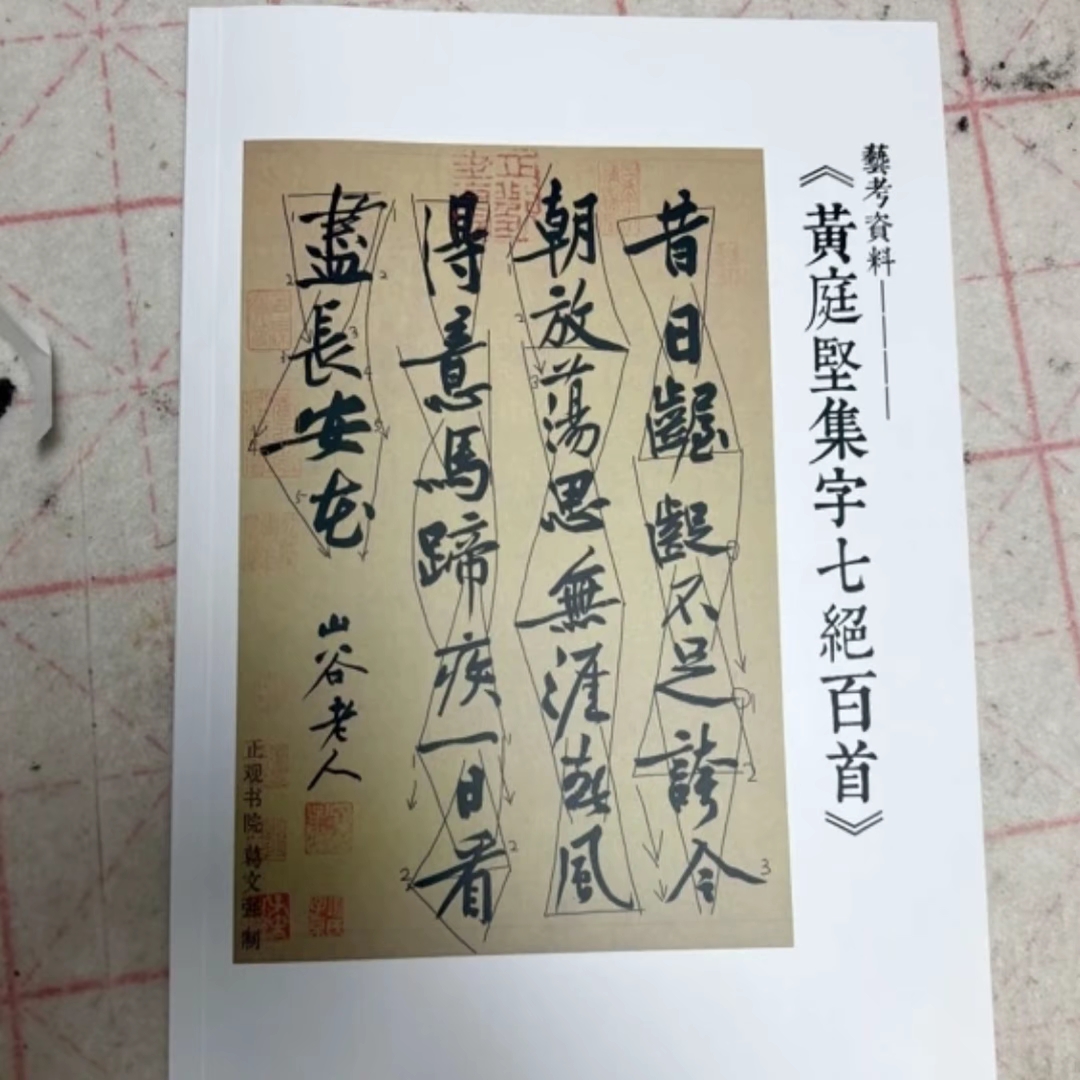 藝考資料————
《黃庭堅集字七絕百首》
昔日齷齪不足誇今
朝放蕩思無涯春風
得意馬蹄疾一日看
盡長安花
山谷老人
正观书院蒋文强制